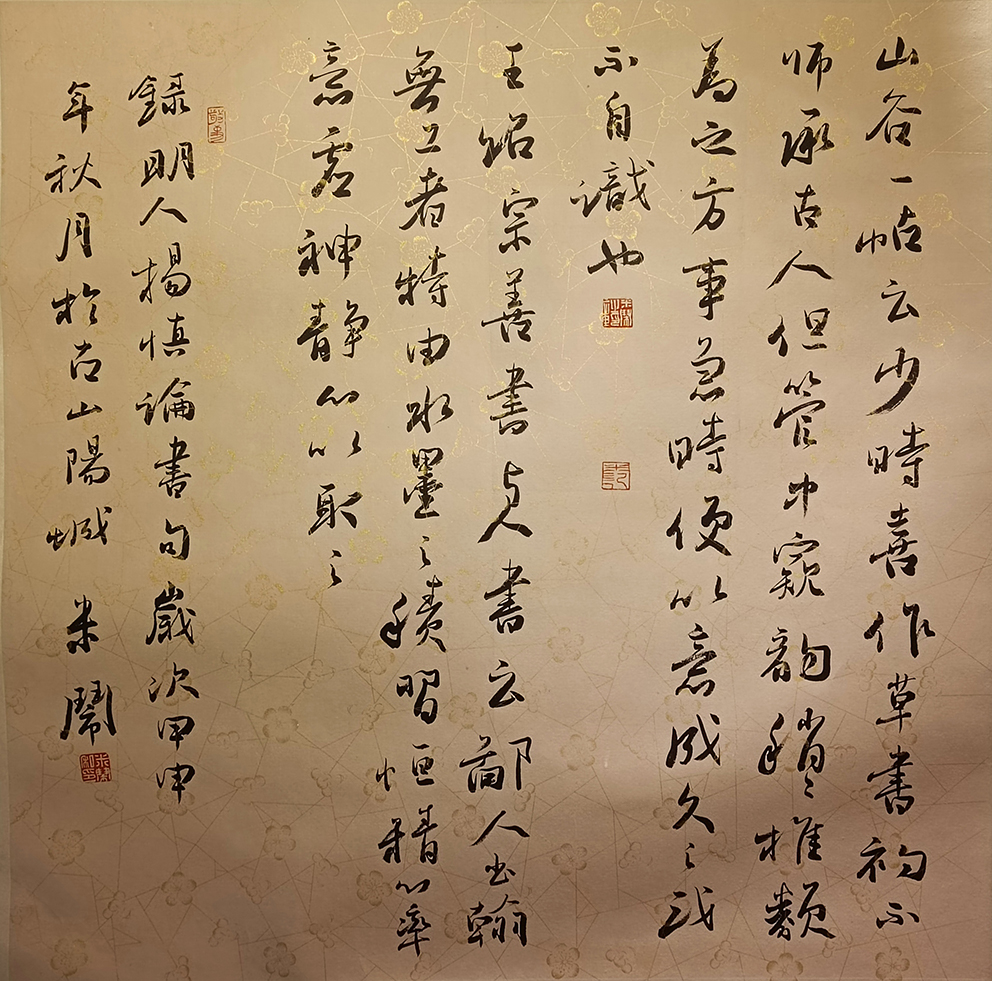 山谷一帖云少時喜作草書初不
师承古人但管中窺韵稍〻推類
為之方事急時便以意成久之或
不自識也
王紹宗善書与人書云鄙人书翰
無工者特由水墨之積習恒精心率
意虚神静心以取之
錄明人楊慎論書句歲次甲申
年秋月於古山陽城 米鬧